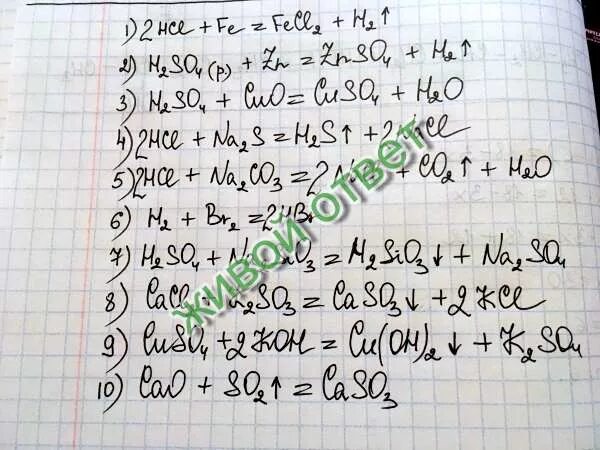 1) 2HCl + Fe = FeCl2 + H2↑
2) H2SO4(р) + Zn = ZnSO4 + H2↑
3) H2SO4 + CuO = CuSO4 + H2O
4) 2HCl + Na2S = H2S↑ + 2 Cl
5) 2HCl + Na2CO3 = 2 + CO2↑ + H2O
6) H2 + Br2 = 2HBr
7) H2SO4 + O3 = H2SiO3↓ + Na2SO4
8) CaCl + 2SO3 = CaSO3↓ + 2KCl
9) CuSO4 + 2KOH = Cu(OH)2↓ + K2SO4
10) CaO + SO2↑ = CaSO3
ЖИВОЙ ОТВЕТ